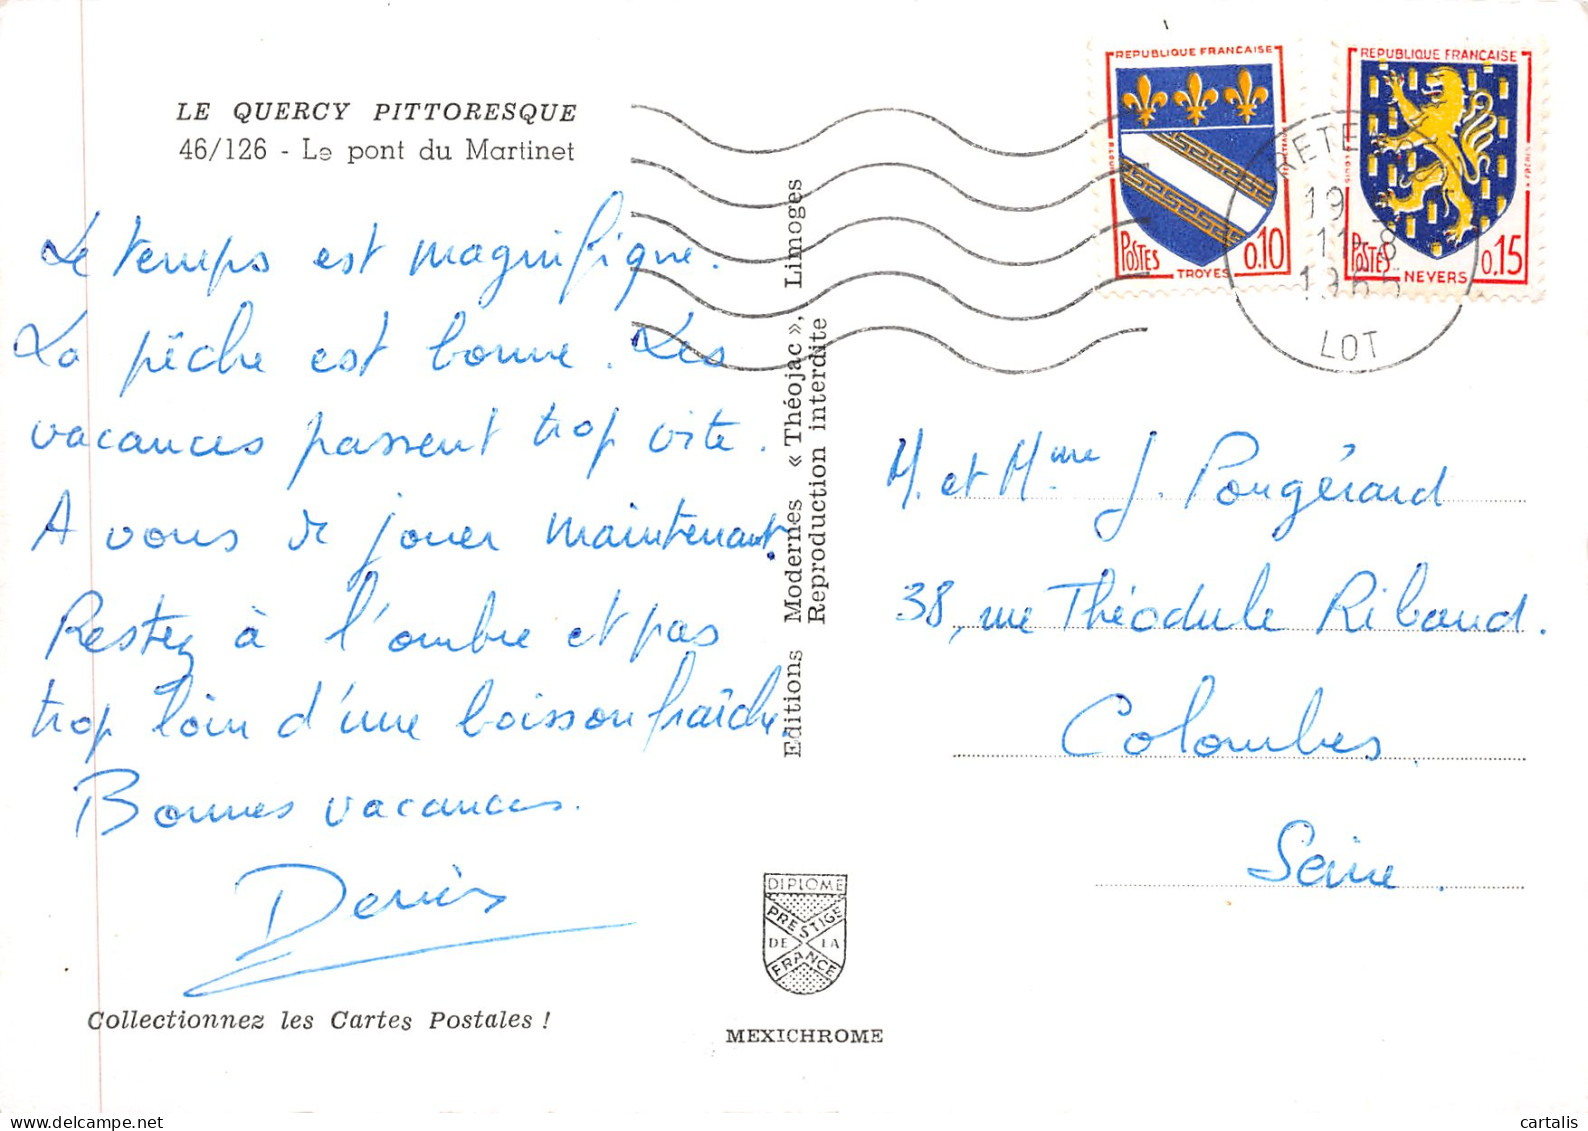 LE QUERCY PITTORESQUE
46/126 - Le pont du Martinet
Le temps est magnifique.
La pêche est bonne. Les
vacances passent trop vite.
A vous de jouer maintenant.
Restez à l'ombre et pas
trop loin d'une boisson fraîche.
Bonnes vacances.
Denis
Collectionnez les Cartes Postales !
Editions Modernes « Théojac », Limoges
Reproduction interdite
DIPLOME
PRESTIGE
DE LA
FRANCE
MEXICHROME
REPUBLIQUE FRANCAISE
POSTES
0.10
TROYES
REPUBLIQUE FRANCAISE
POSTES
0.15
NEVERS
LOT
M. et Mme J. Pougérard
38, rue Théodule Ribaud.
Colombes
Seine.